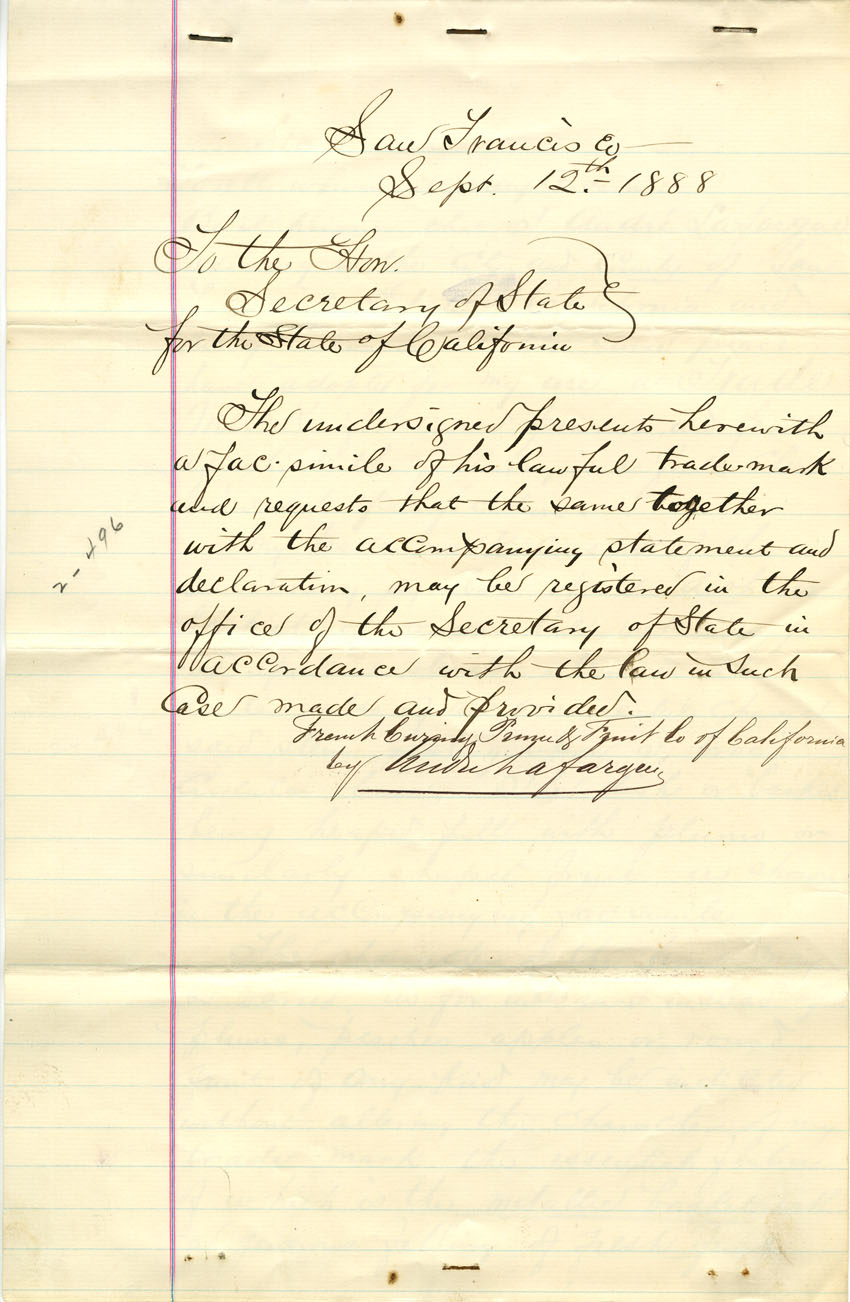 San Francisco
Sept. 12th 1888
To the Hon.
Secretary of State
for the State of California
The undersigned presents herewith
a fac-simile of his lawful trade-mark
and requests that the same together
with the accompanying statement and
declaration, may be registered in the
office of the Secretary of State in
accordance with the law in such
Case made and provided.
French Curing Prune & Fruit Co of California
by Andre Lafargue
2-496